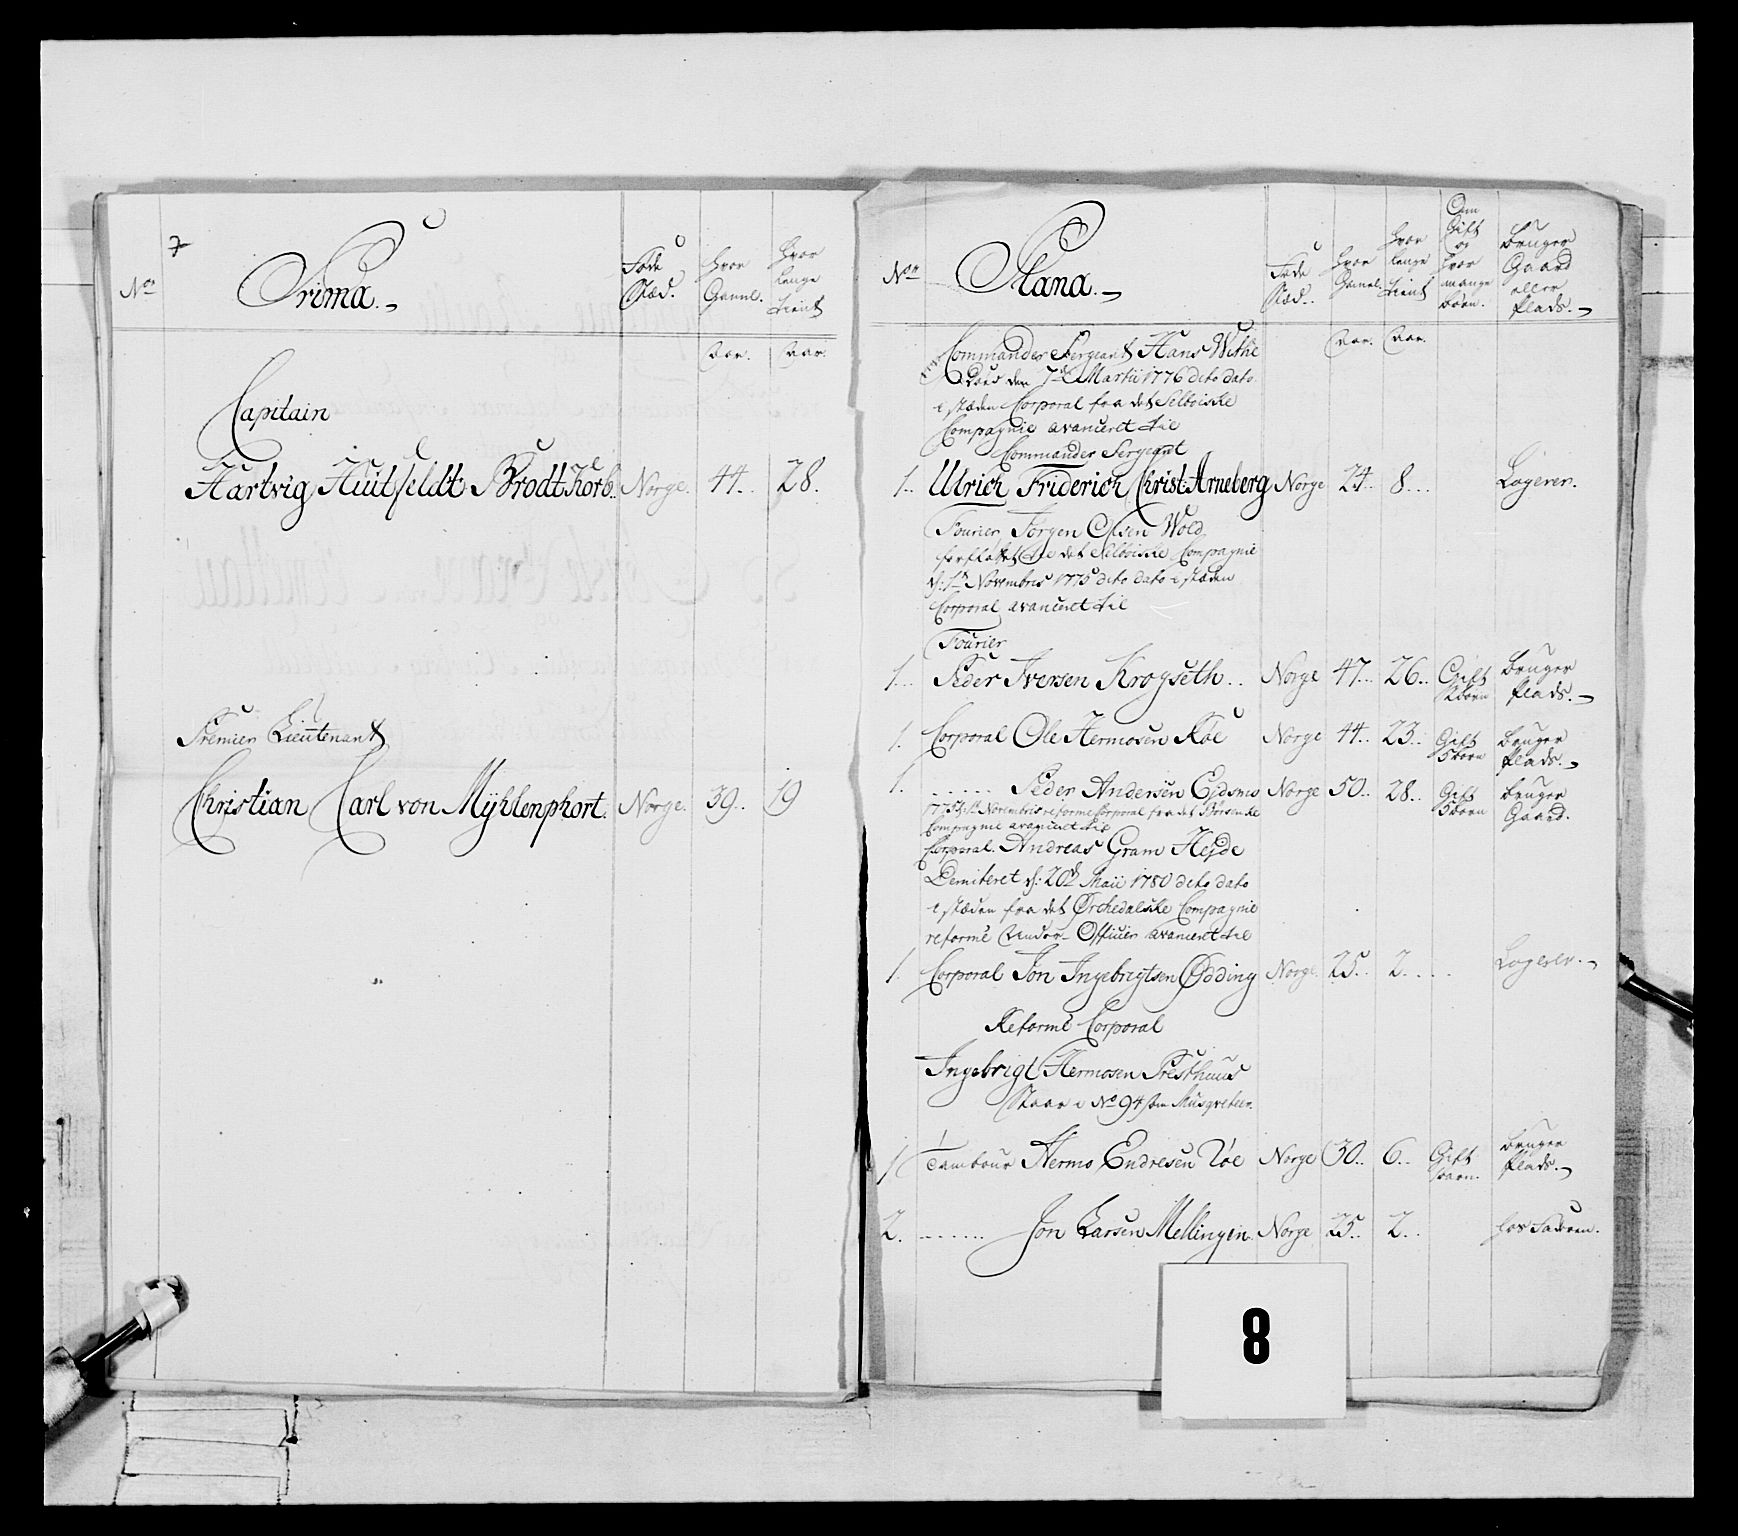 7
No
Prima.
Føde Stæd.
hvor Gaml.
hvor lenge tient
Aar. Aar.
Capitain
Hartvig Huitfeldt Brodtkorb. Norge. 44.. 28.
Premier Lieutenant
Christian Carl von Myhlenphort. Norge. 39.. 19
No
Plana.
Føde Stæd..
hvor Gamel.
hvor lenge tient
Om Gift og hvor mange Børn.
bruger Gaard eller Plads.
Aar. Aar.
Commander Sergeant Hans Wethe
Død den 7de Martii 1776 dito dato
i stæden Corporal fra det Selboiske
Compagnie avanceret til
Commander Sergeant
1.. Ulrich Friderich Christ: Arneberg Norge 24.. 8... Logerer.
Fourier Jørgen Olsen Wold
forfløttet til det Selboiske Compagnie
d: 1te Novembris 1775 dito dato i stæden
Corporal avanceret til
Fourier
1... Peder Iversen Krogseth.. Norge 47... 26.. Gift 2 børn bruger Plads.
1. Corporal Ole Hermosen Røe Norge 44.. 23.. Gift 3 børn bruger Plads.
1. ...... Peder Andersen Eidsmo Norge 50.. 28.. Gift 5 børn bruger Gaard.
1775 d: 1te Novembris reforme Corporal fra det Børsenske
Compagnie avanceret til
Corporal. Andreas Gram Hejde
Demiteret d: 20de Maii 1780 dito dato
i stæden fra det Ørchedalske Compagnie
reformé Under-Officier avanceret til
1. Corporal Jon Ingebrigtsen Ødding Norge. 25.. 2.... Logerer.
Reformé Corporal
Ingebrigt Hermosen Presthuus
Staar i No 94 som Musqveteer.
1 Tambour Hermo Endresen Røe Norge 30.. 6.. Gift 1 barn. bruger Plads.
2. ....... Jon Larsen Mellingen. Norge 25.. 2.. hos Faderen.
8